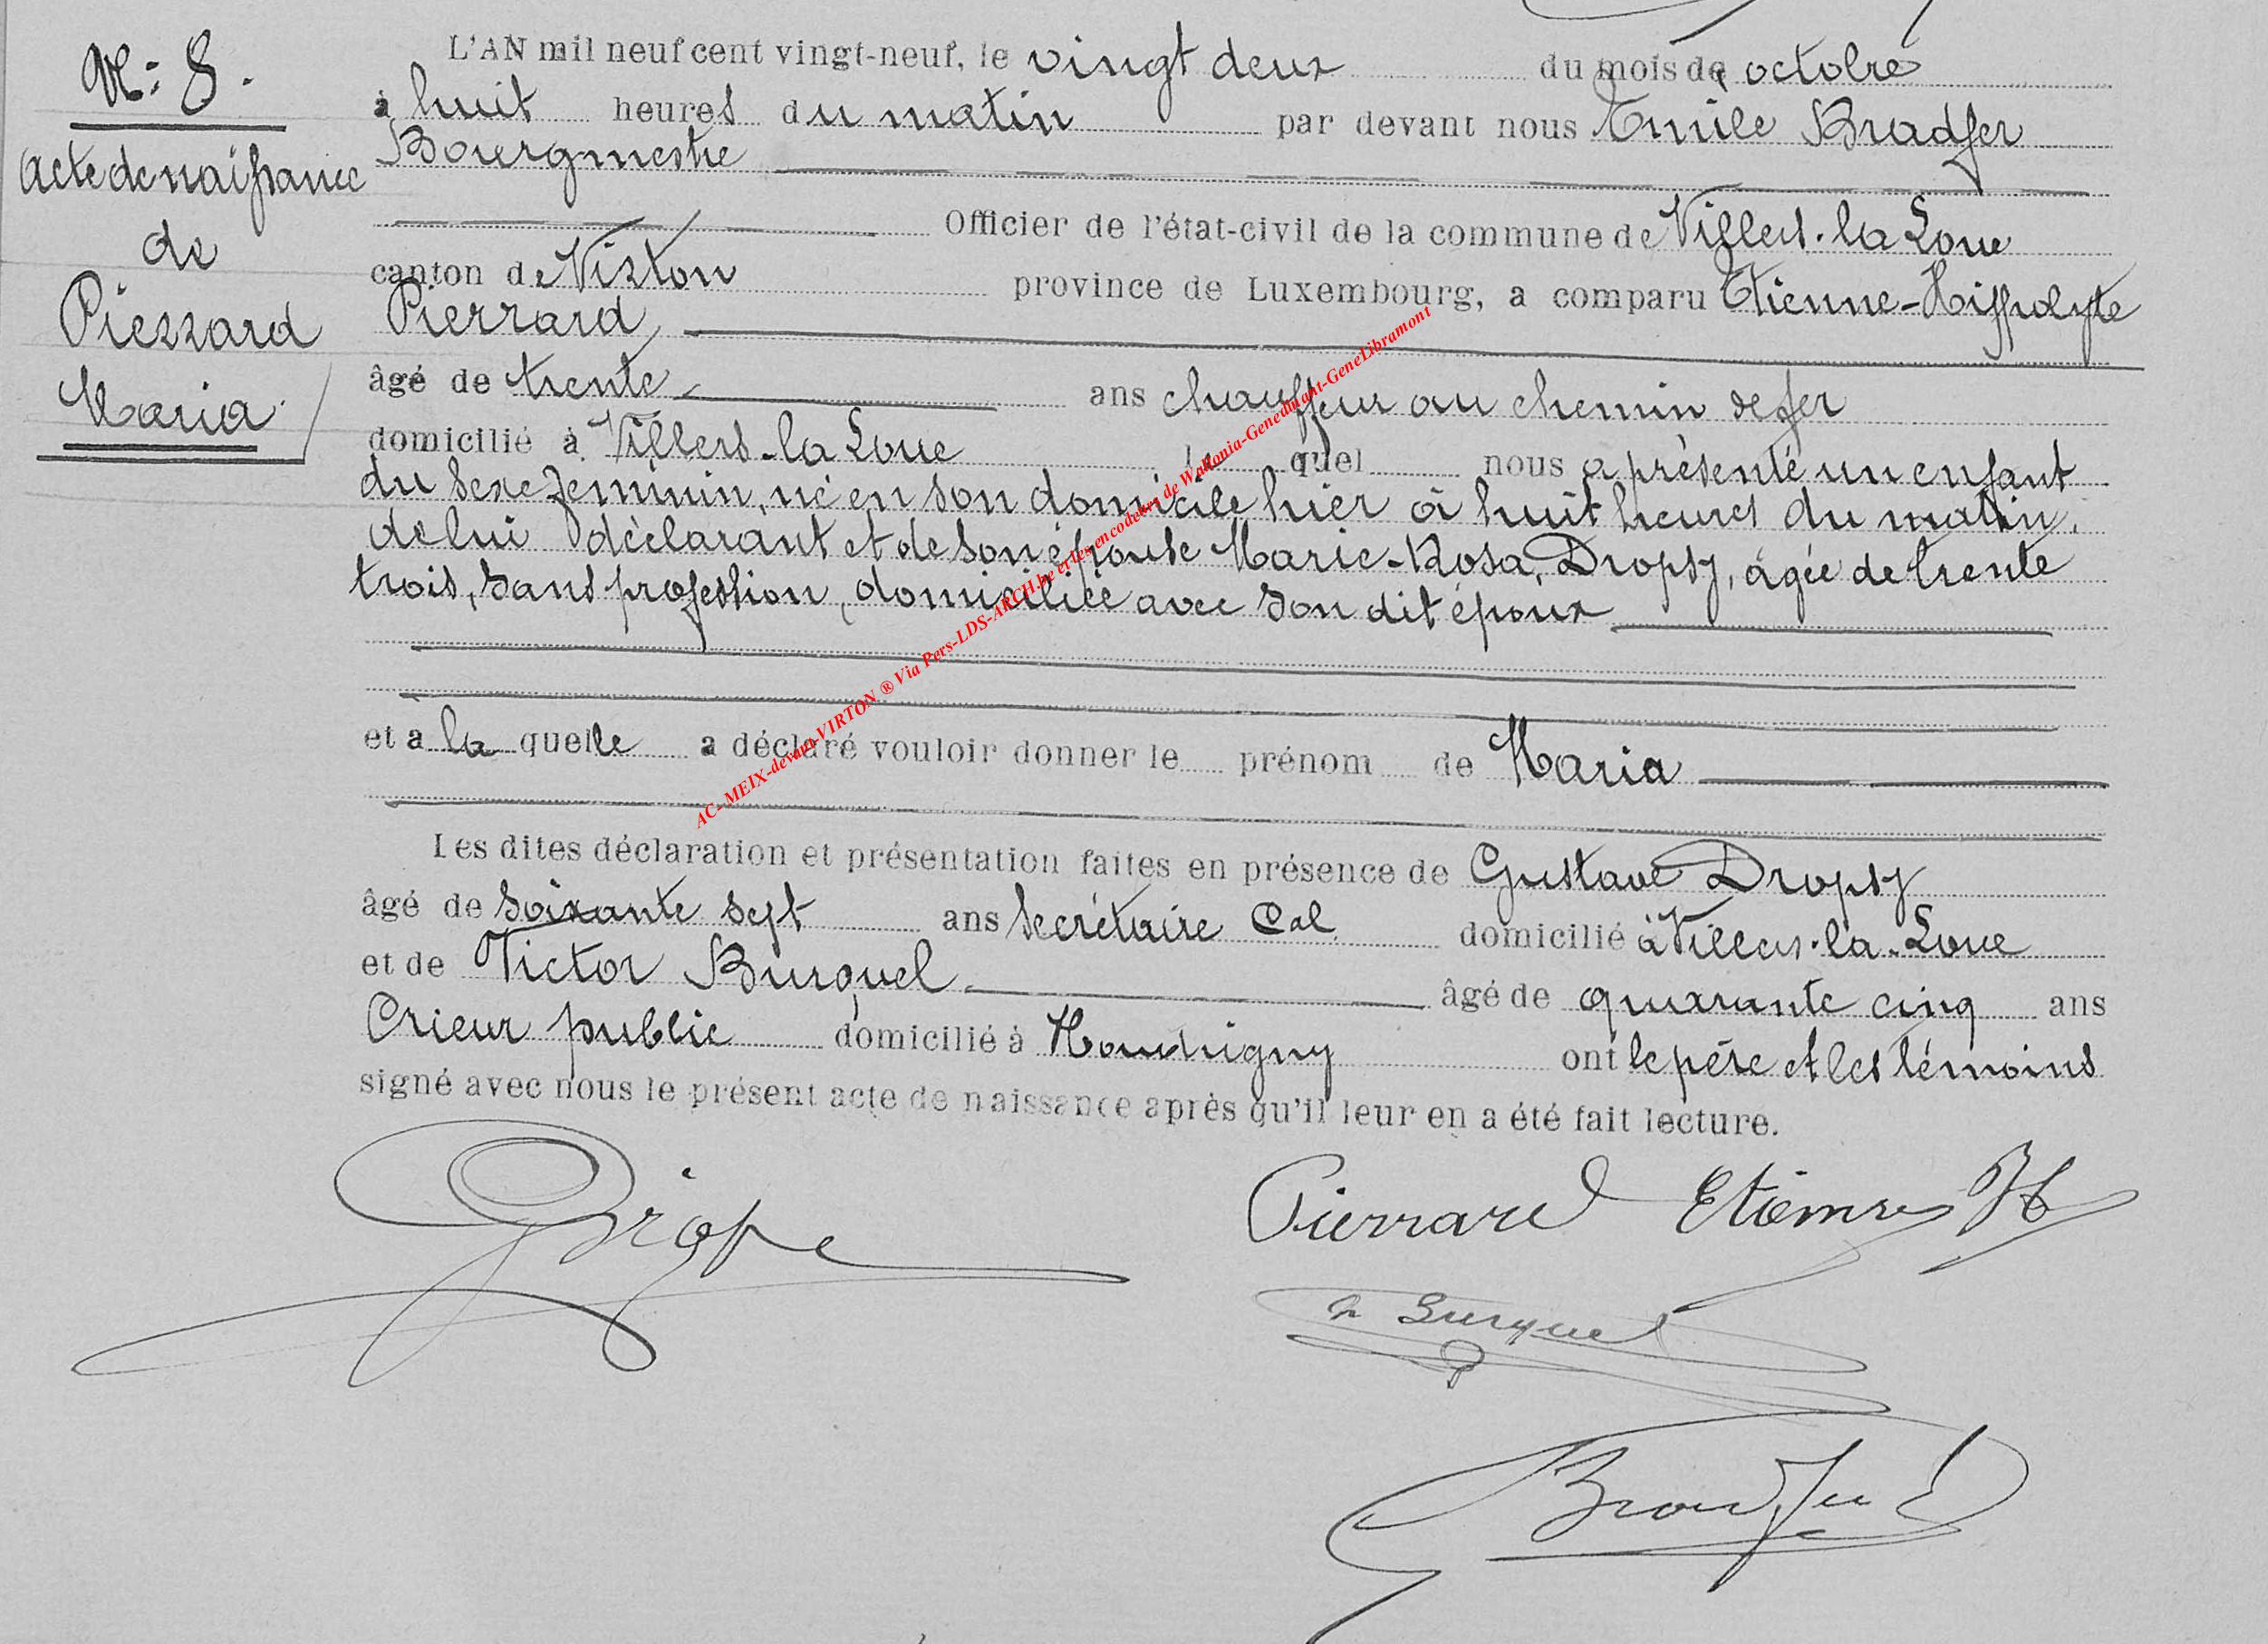 N: 8.
Acte de naissance
de
Pierrard
Maria
L'AN mil neuf cent vingt-neuf, le vingt deux du mois de octobre
à huit heures du matin par devant nous Emile Bradfer
Bourgmestre
Officier de l'état-civil de la commune de Villers-la Loue
canton de Virton province de Luxembourg, a comparu Etienne-Hippolyte
Pierrard
âgé de trente ans chauffeur au chemin de fer
domicilié à Villers-la Loue lequel nous a présenté un enfant
du sexe féminin, né en son domicile hier à huit heures du matin,
de lui déclarant et de son épouse Marie-Rosa, Dropsy, âgée de trente
trois, sans profession, domiciliée avec son dit époux
et à la quelle a déclaré vouloir donner le prénom de Maria
Les dites déclaration et présentation faites en présence de Gustave Dropsy
âgé de soixante sept ans secrétaire Cal domicilié à Villers-la-Loue
et de Victor Burquel âgé de quarante cinq ans
Crieur public domicilié à Houdrigny ont le père et les témoins
signé avec nous le présent acte de naissance après qu'il leur en a été fait lecture.
Pierrard Etienne H
V Burquel
Bradfer
AC- MEIX-devant-VIRTON ® Via Pers-LDS-ARCH.be et les encodeurs de Wallonia-Genedinant-GeneLibramont